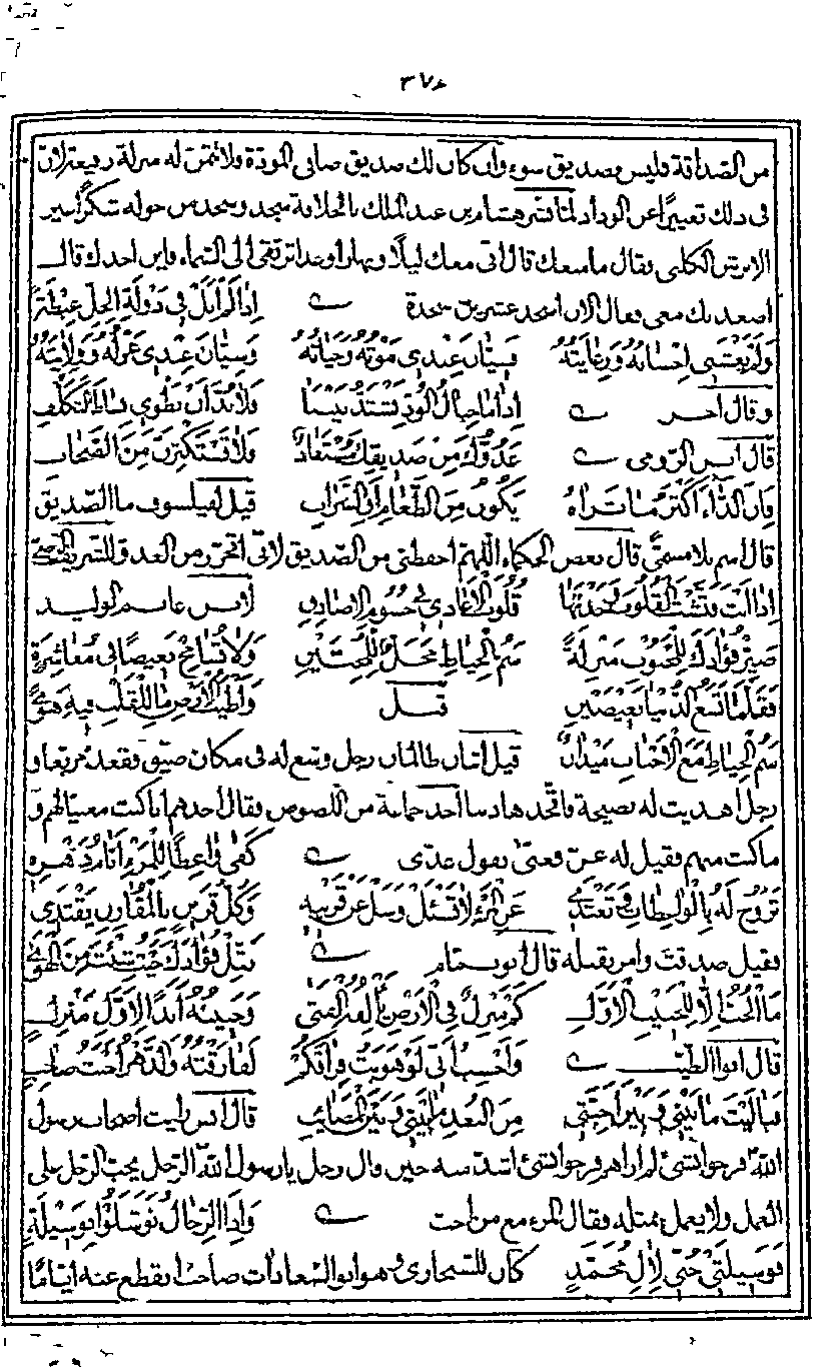 ٣٧٤
من الصداقة فليس بصديق سوء وان كان لك صديق صافي المودة ولا تتمن له منزلة رفيعة لان
في ذلك تغييرًا عن الوداد لما بشر هشام بن عبد الملك بالخلافة سجد وسجد من حوله شكرًا سير
الابرش الكلبي فقال ما منعك قال اني معك ليلًا ونهارًا وغدا ترتقي الى السماء فاين اجدك قال
اصعد بك معي فقال الان اسجد عشرين سجدة اِذَا لَمْ اَنَلْ فِي دَوْلَةِ الخِلِّ غِبْطَةً
وَلَمْ يَغْشَنِي اِحْسَانُهُ وَرِعَايَتُهُ فَسِيَّانَ عِنْدِي مَوْتُهُ وَحَيَاتُهُ وَسِيَّانَ عِنْدِي عَزْلُهُ وَوِلَايَتُهُ
وقال اخر اِذَا مَا حِبَالُ الْوُدِّ تَشْتَدُّ بَيْنَنَا فَلَا بُدَّ اَنْ نَطْوِي بِسَاطَ التَّكَلُّفِ
قال ابن الرومي عَدُوُّكَ مِنْ صَدِيقِكَ مُسْتَفَادٌ فَلَا تَسْتَكْثِرَنَّ مِنَ الصِّحَابِ
فَاِنَّ الدَّاءَ اَكْثَرَ مَا تَرَاهُ يَكُونُ مِنَ الطَّعَامِ اَوِ الشَّرَابِ قيل لفيلسوف ما الصديق
قال اسم بلا مسمّى قال بعض الحكماء اللهم احفظني من الصديق لاني اتحرز من العدو للشريف الرضي
اِذَا اَنْتَ فَتَّشْتَ الْقُلُوبَ وَجَدْتَهَا قُلُوبَ الْاَعَادِي فِي جُسُومِ الْاَصَادِقِ لابن عاصم الوليد
صَيِّرْ فُؤَادَكَ لِلْمَحْبُوبِ مَنْزِلَةً سَمُّ الْخِيَاطِ مَجَالٌ لِلْمُحِبَّيْنِ وَلَا تُسَامِحْ بَغِيضًا فِي مُعَاشَرَةٍ
فَقَلَّمَا تَسَعُ الدُّنْيَا بَغِيضَيْنِ قيل وَاَطْيَبُ الْاَرْضِ مَا لِلْقَلْبِ فِيهِ هَوًى
سَمُّ الْخِيَاطِ مَعَ الْاَحْبَابِ مَيْدَانُ قيل اثنان ظالمان رجل وسع له في مكان ضيق فقعد متربعا و
رجل اهديت له نصيحة فاتخذها ذنبا اخذ جماعة من اللصوص فقال احدهم انا كنت مغنيا لهم و
ما كنت منهم فقيل له غن فغنى بقول عدي كَفَى وَاعِظًا لِلْمَرْءِ اَيَّامُ دَهْرِهِ
تَرُوحُ لَهُ بِالْوَاعِظَاتِ وَتَغْتَدِي عَنِ الْمَرْءِ لَا تَسْئَلْ وَسَلْ عَنْ قَرِينِهِ وَكُلُّ قَرِينٍ بِالْمُقَارِنِ يَقْتَدِي
فقيل صدقت وامر بقتله قال ابو تمام نَقِّلْ فُؤَادَكَ حَيْثُ شِئْتَ مِنَ الْهَوَى
مَا الْحُبُّ اِلَّا لِلْحَبِيبِ الْاَوَّلِ كَمْ مَنْزِلٌ فِي الْاَرْضِ يَأْلَفُهُ الْفَتَى وَحَنِينُهُ اَبَدًا لِاَوَّلِ مَنْزِلِ
قال ابوا الطيب وَاَحْسِبُ اَنِّي لَوْ هَوَيْتُ فِرَاقَكُمْ لَفَارَقْتُهُ وَالدَّهْرُ اَخْبَثُ صَاحِبِ
فَيَا لَيْتَ مَا بَيْنِي وَبَيْنَ اَحِبَّتِي مِنَ الْبُعْدِ مَا بَيْنِي وَبَيْنَ الْمَصَائِبِ قال انس رايت اصحاب رسول
الله فرحوا بشئ لم ارهم فرحوا بشئ اشد منه حين قال رجل يا رسول الله الرجل يحب الرجل على
العمل ولا يعمل بمثله فقال المرء مع من احب وَاِذَا الرِّجَالُ تَوَسَّلُوا بِوَسِيلَةٍ
فَوَسِيلَتِي حُبِّي لِآلِ مُحَمَّدٍ كان للسنجاري وهو ابو السعادات صاحب انقطع عنه ايامًا